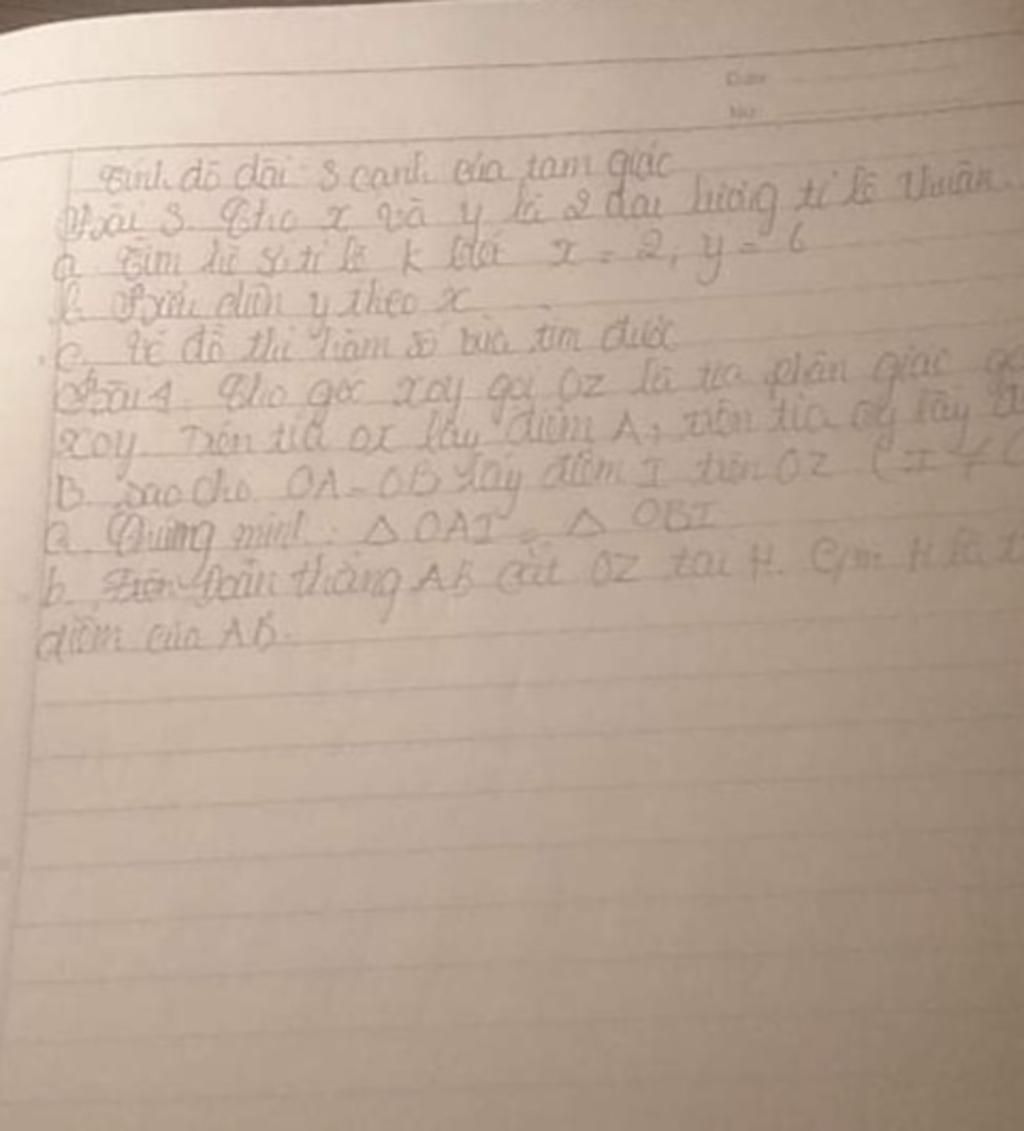 Date
No:
Tính độ dài 3 cạnh của tam giác
Bài 3. Cho x và y là 2 đại lượng tỉ lệ thuận.
a. Tìm hệ số tỉ lệ k biết x = 2, y = 6
b. Biểu diễn y theo x
c. Vẽ đồ thị hàm số vừa tìm được
Bài 4. Cho góc xoy gọi Oz là tia phân giác
xoy. Trên tia ox lấy điểm A, trên tia oy lấy
B sao cho OA = OB lấy điểm I trên OZ ( I ≠
a. Chứng minh: △ OAI = △ OBI
b. đoạn thẳng AB cắt OZ tại H. C/m: H là
điểm của AB.